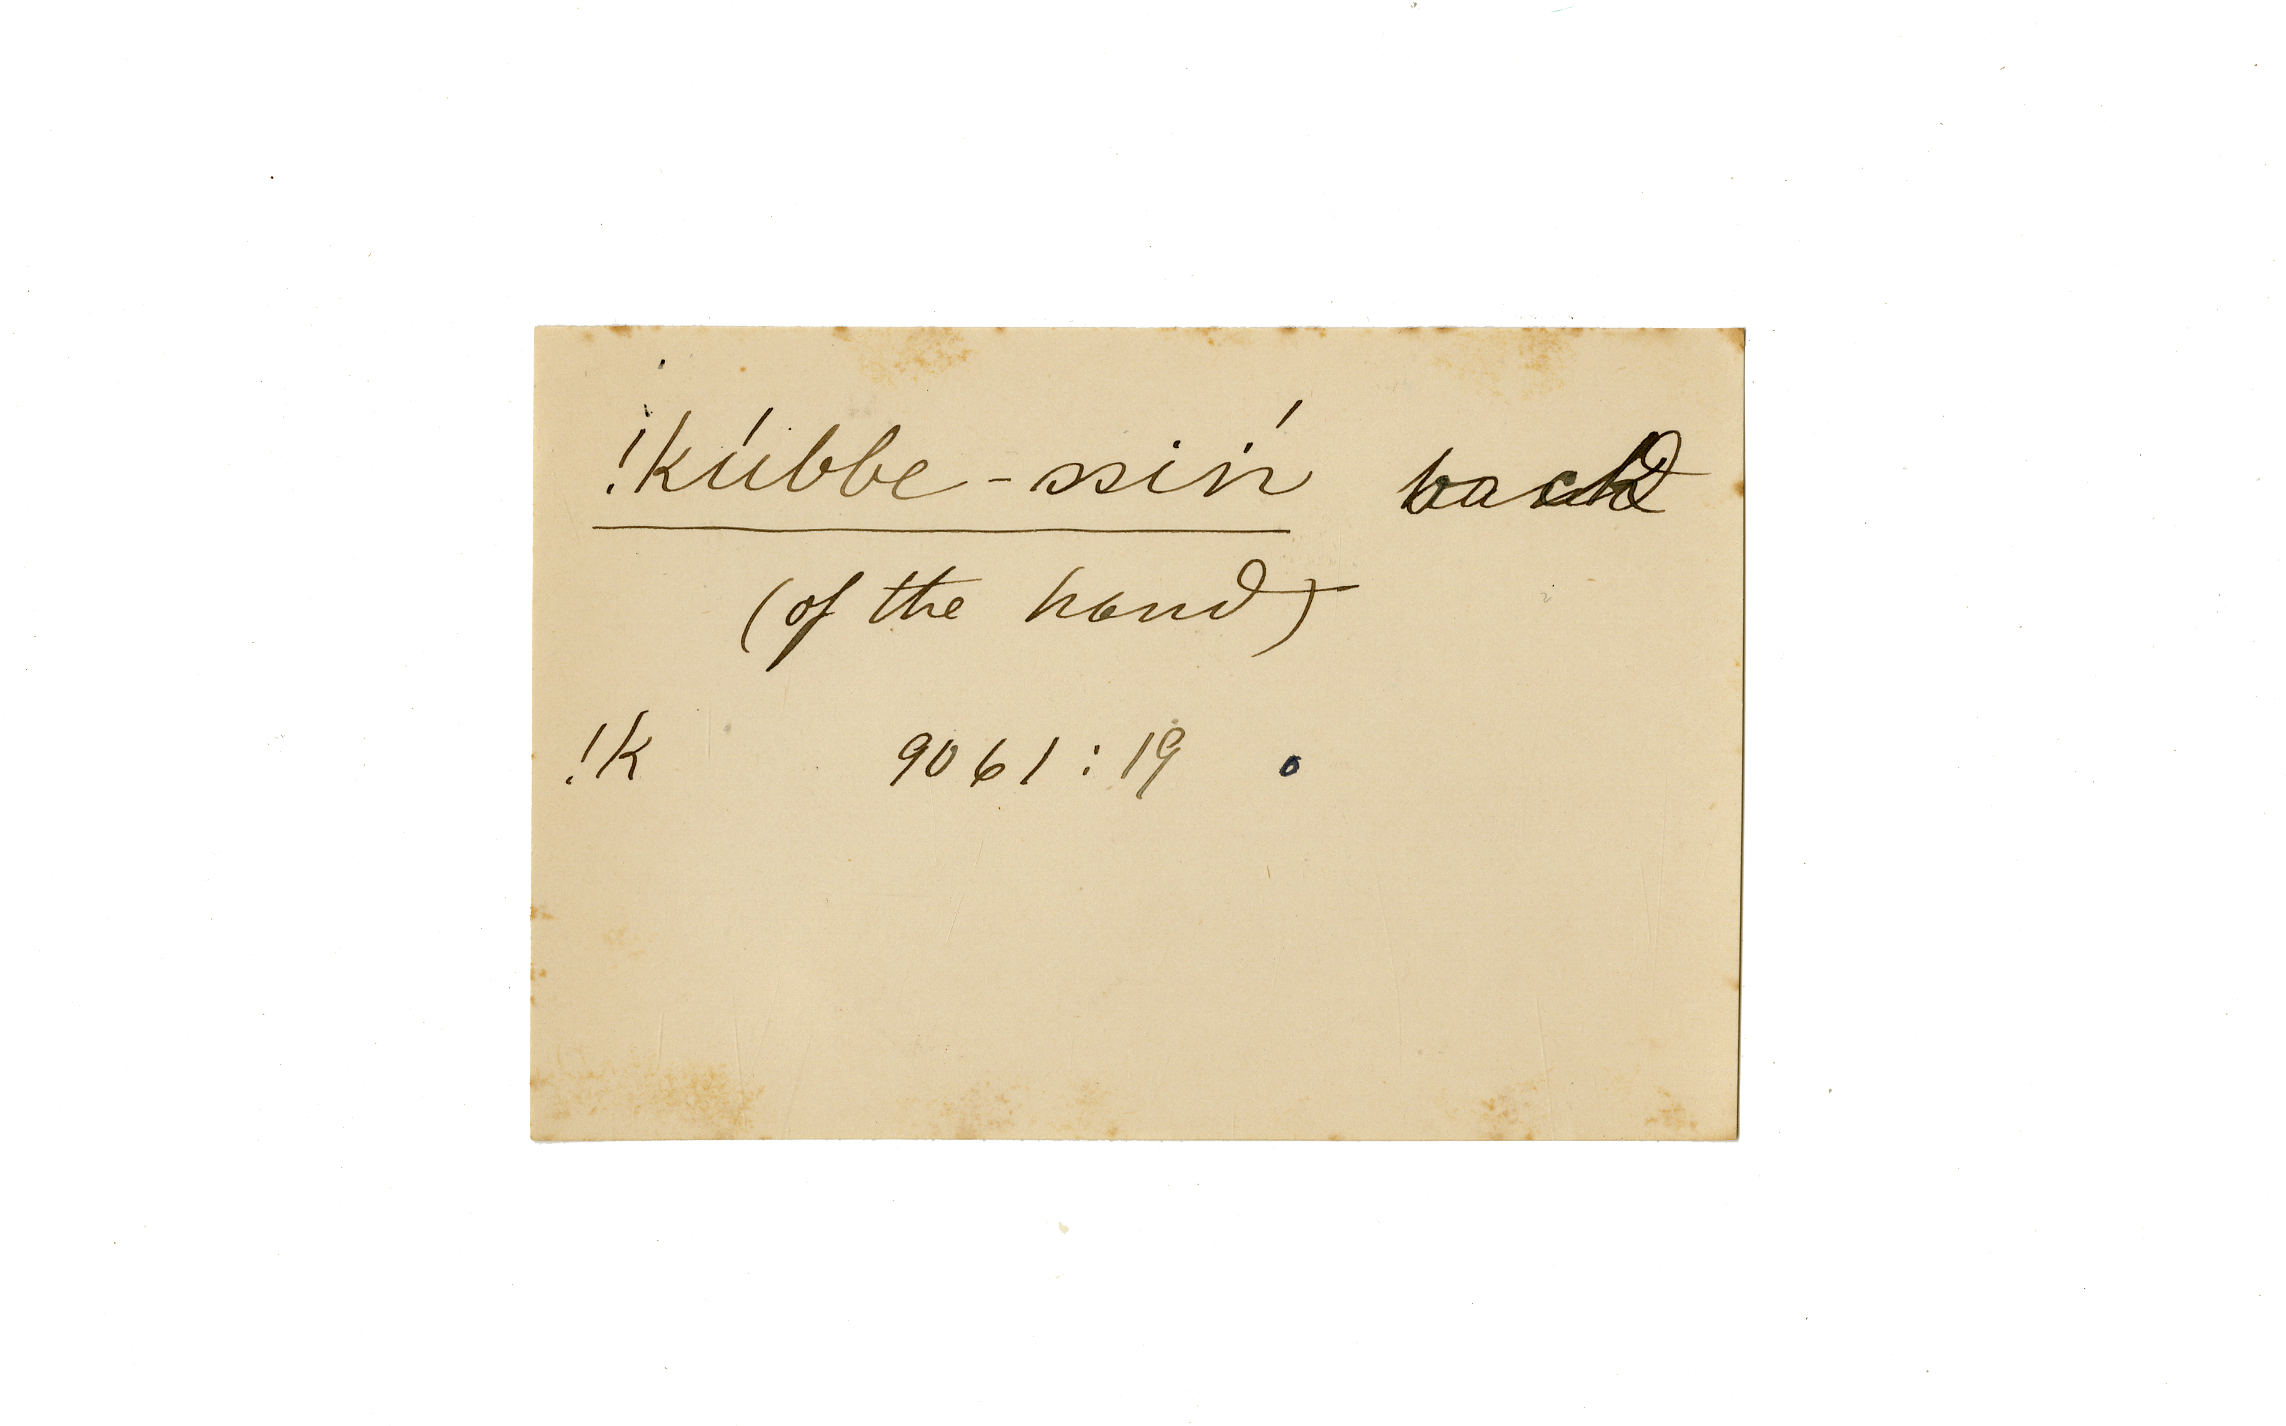 !kúbbe-ssiṅ́ back
(of the hand)
!k 9061:19